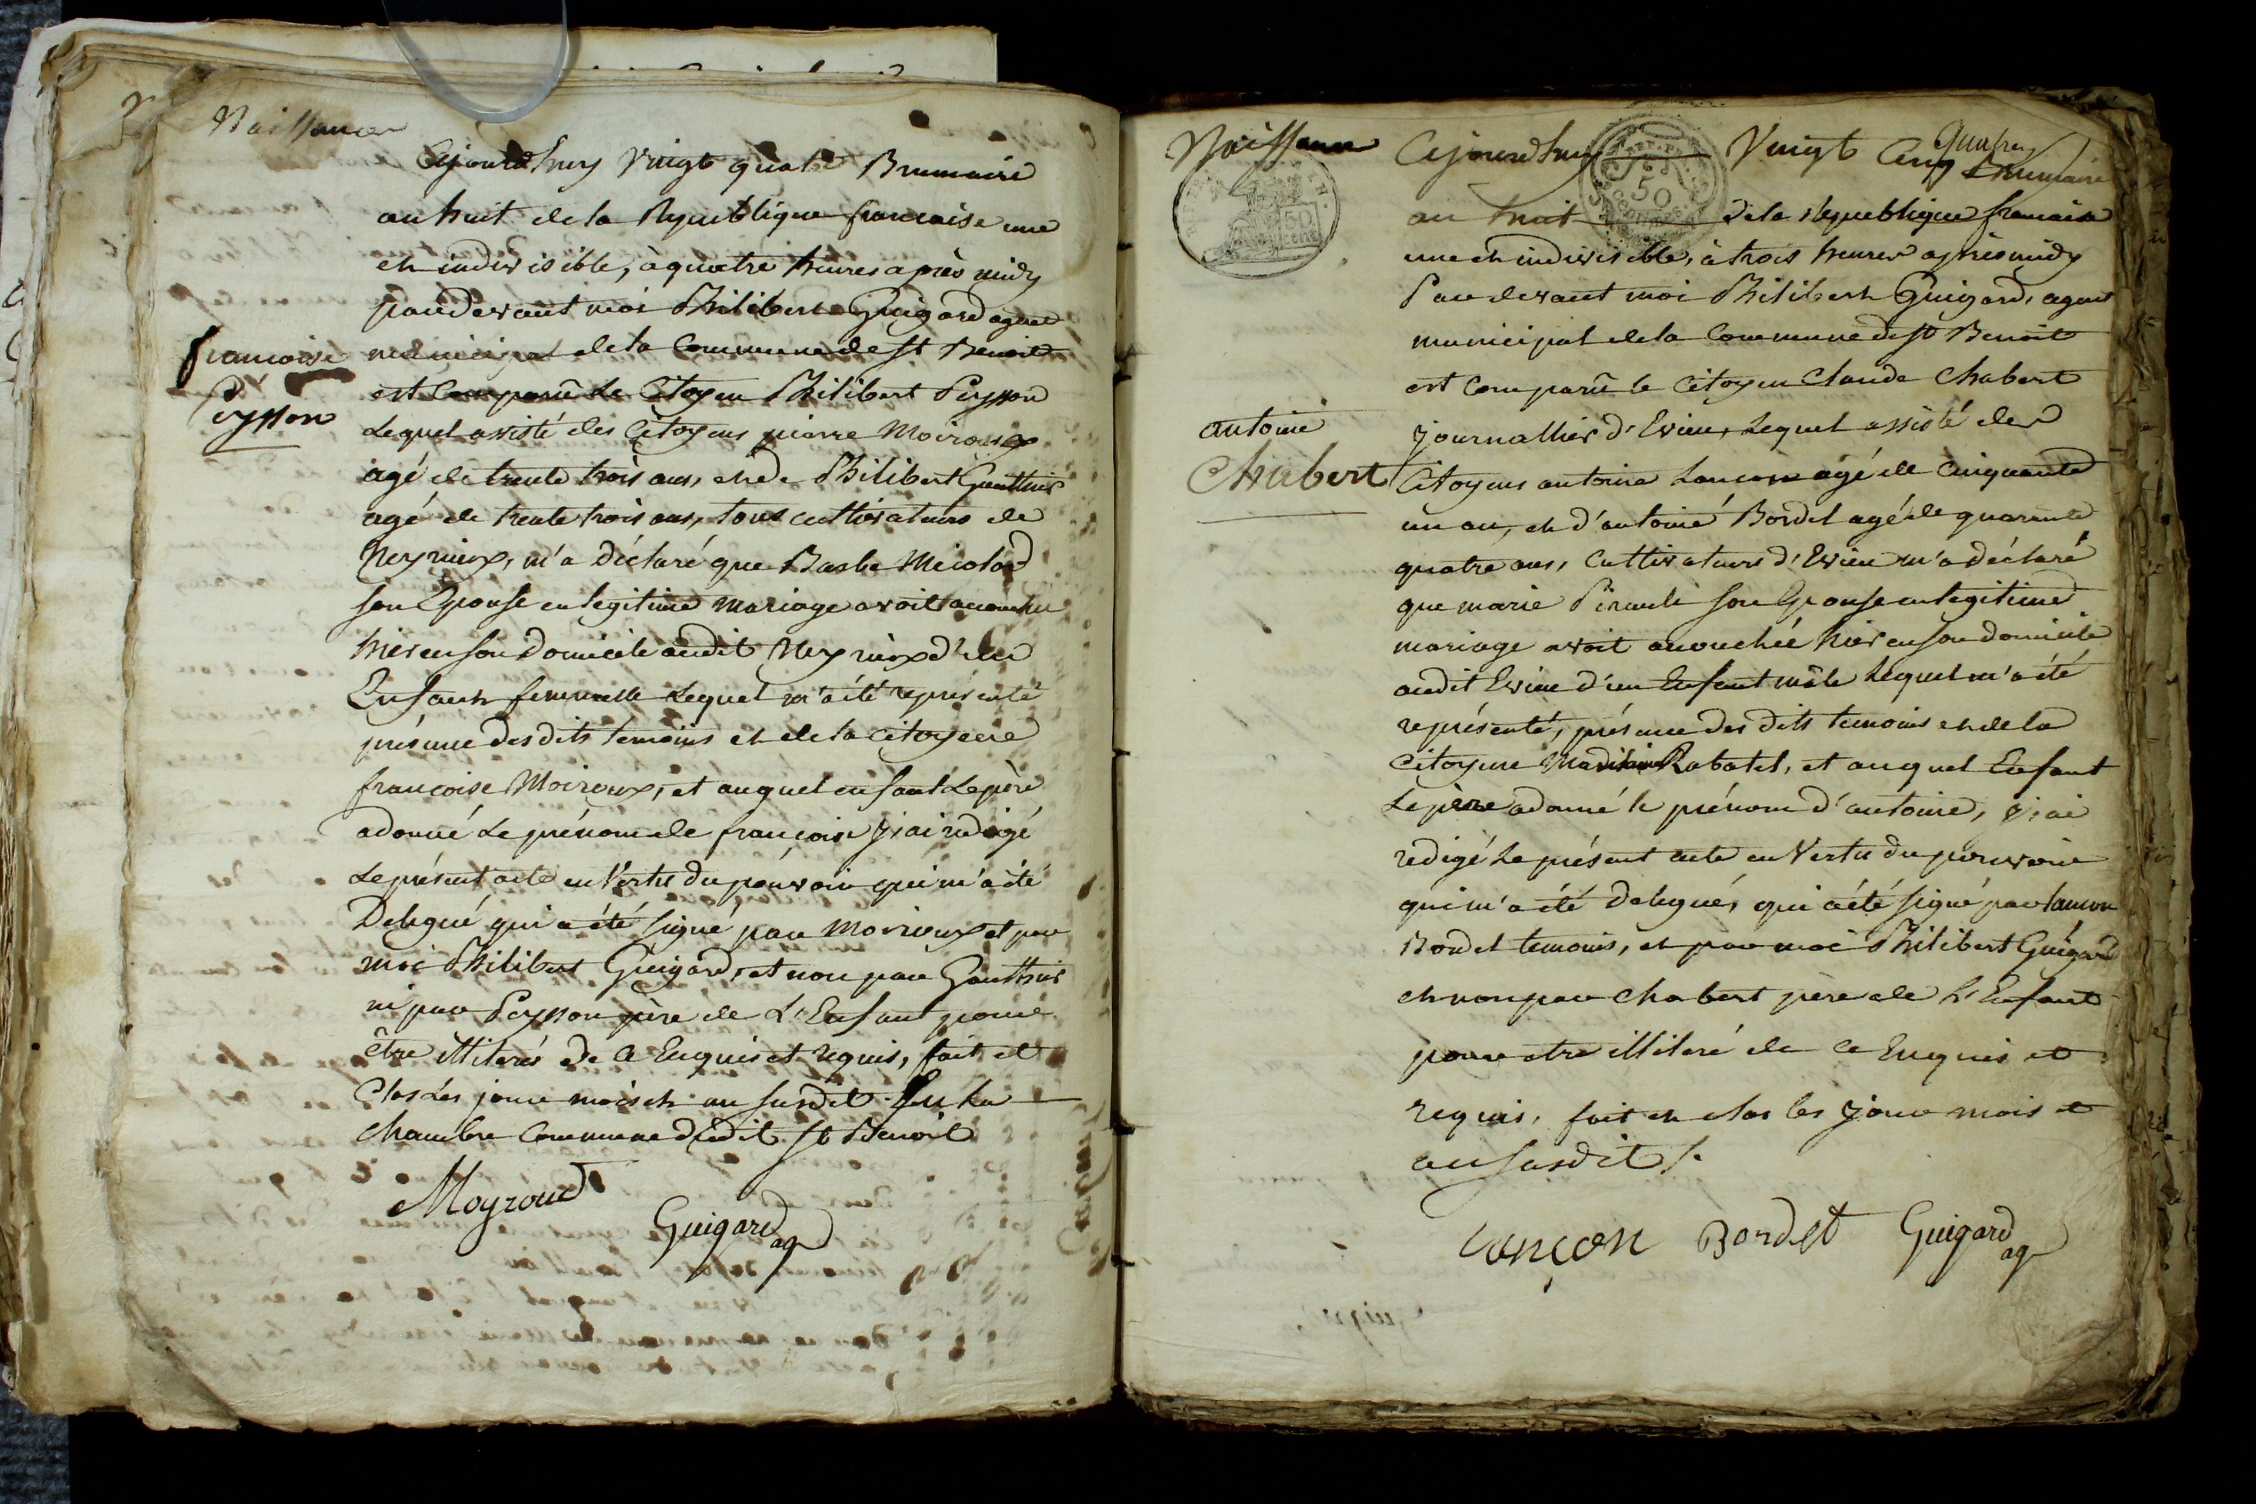 Naissance
Cejourd'huy Vingt quatre Brumaire
an huit de la Republique francaise une
et indivisible, à quatre heures après midy
pardevant moi Philibert Guigard agent
françoise
Peysson
municipal de la Commune de St Benoit
est Comparû Le Citoyen Philibert Peysson
Lequel assisté des Citoyens pierre Moiroux
agé de trente trois ans, et de Philibert Gauthier
agé de trente trois ans, tous cultivateurs de
Neyrieux, m'a déclaré que Barbe Micoloud
son Epouse en legitime mariage avoit accouchu
hier en son Domicile audit Neyrieux d'un
Enfant femmelle Lequel m'a été représenté
présence des dits temoins et de la citoyene
françoise Moiroux, et auquel enfant Le père
a donné Le prénom de françoise j'ai redigé
Le présent acte en Vertu du pouvoir qui m'a été
Delegué qui a été signé par Moiroux et par
moi Philibert Guigard, et non par Gauthier
ni par Peysson père de L'Enfant pour
être illiterés de ce Enquis et requis, fait et
Clos Les jour mois et an susdit En La
Chambre Commune dudit St Benoit
Moyroud
Guigard ag
Naissance
Cejourd'huy Vingt Cinq Brumaire
50
an huit de la Republique francaise
une et indivisible, à trois heures après midy
Par devant moi Philibert Guigard, agent
municipal de la Commune de St Benoit
est Comparû le Citoyen Claude Chabert
antoine
Chabert
journallier d'Evieu, Lequel assisté des
Citoyens antoine Lançon agé de Cinquante
un an, et d'antoine Bordet agé de quarente
quatre ans, Cultivateurs d'Evieu m'a déclaré
que marie son Epouse en legitime
mariage avoit accouchée hier en son domicile
audit Evieu d'un Enfant mâle Lequel m'a été
représenté, présence des dits temoins et de la
Citoyene Rabatel, et auquel Enfant
Le père a donné le prénom d'antoine, j'ai
redigé Le présent acte en Vertu du pouvoir
qui m'a été Delegué, qui a été signé par Lancon
Bordet temoins, et par moi Philibert Guigard
et non par Chabert père de L'Enfant
pour etre illiteré de ce Enquis et
requis, fait et clos les jour mois et
an susdit /.
Lançon Bordet Guigard ag